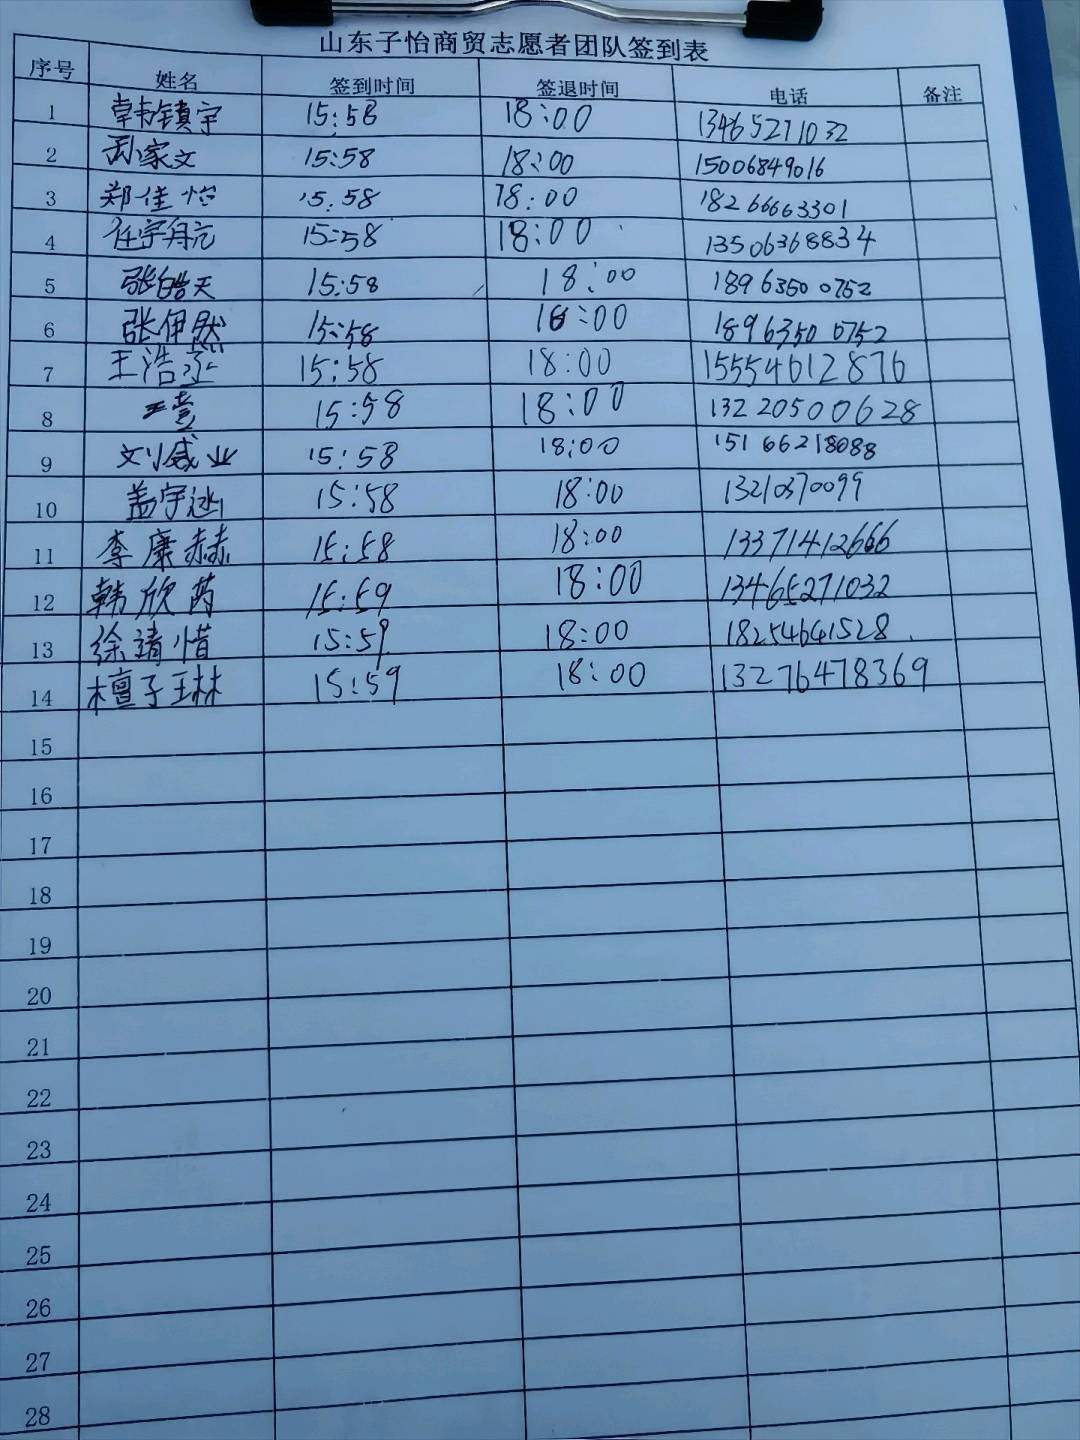 山东子怡商贸志愿者团队签到表
序号 姓名 签到时间 签退时间 电话 备注
1 韩镇宇 15:58 18:00 13465271032
2 孙家文 15:58 18:00 15006849016
3 郑佳怡 15:58 18:00 18266663301
4 任宇航 15:58 18:00 13506368834
5 张皓天 15:58 18:00 18963500752
6 张伊然 15:58 18:00 18963500752
7 王浩丞 15:58 18:00 15554612876
8 15:58 18:00 13220500628
9 刘盛业 15:58 18:00 15166218088
10 盖宇涵 15:58 18:00 13210370099
11 李康赫 15:58 18:00 13371412666
12 韩欣芮 15:59 18:00 13465271032
13 徐靖惜 15:59 18:00 18254641528
14 檀子琳 15:59 18:00 13276478369
15
16
17
18
19
20
21
22
23
24
25
26
27
28